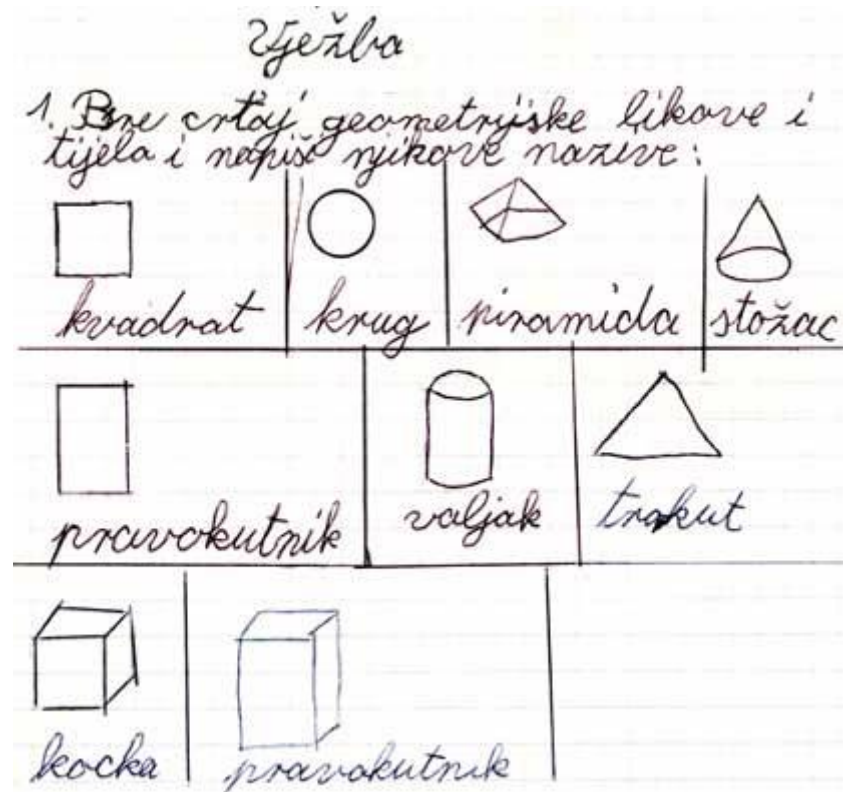 Vježba
1. Bre crtaj geometrijske likove i
tijela i napiš njikove nazive:
kvadrat krug piramida stožac
pravokutnik valjak trokut
kocka pravokutnik